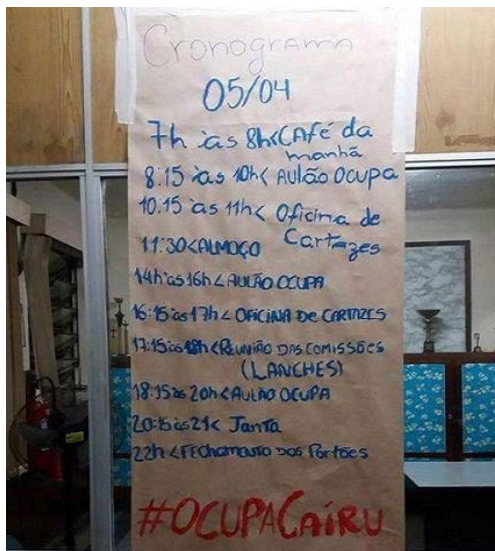 Cronograma
05/04
7h às 8h< Café da
manhã
8:15 às 10h< Aulão Ocupa
10:15 às 11h< Oficina de
Cartazes
11:30< ALMOÇO
14h às 16h< AULÃO OCUPA
16:15 às 17h< OFICINA DE CARTAZES
17:15 às 18h< REUNIÃO DAS COMISSÕES
(LANCHES)
18:15 às 20h< AULÃO OCUPA
20:15 às 21< Janta
22h< FEchamento dos Portões
#OCUPACAIRU